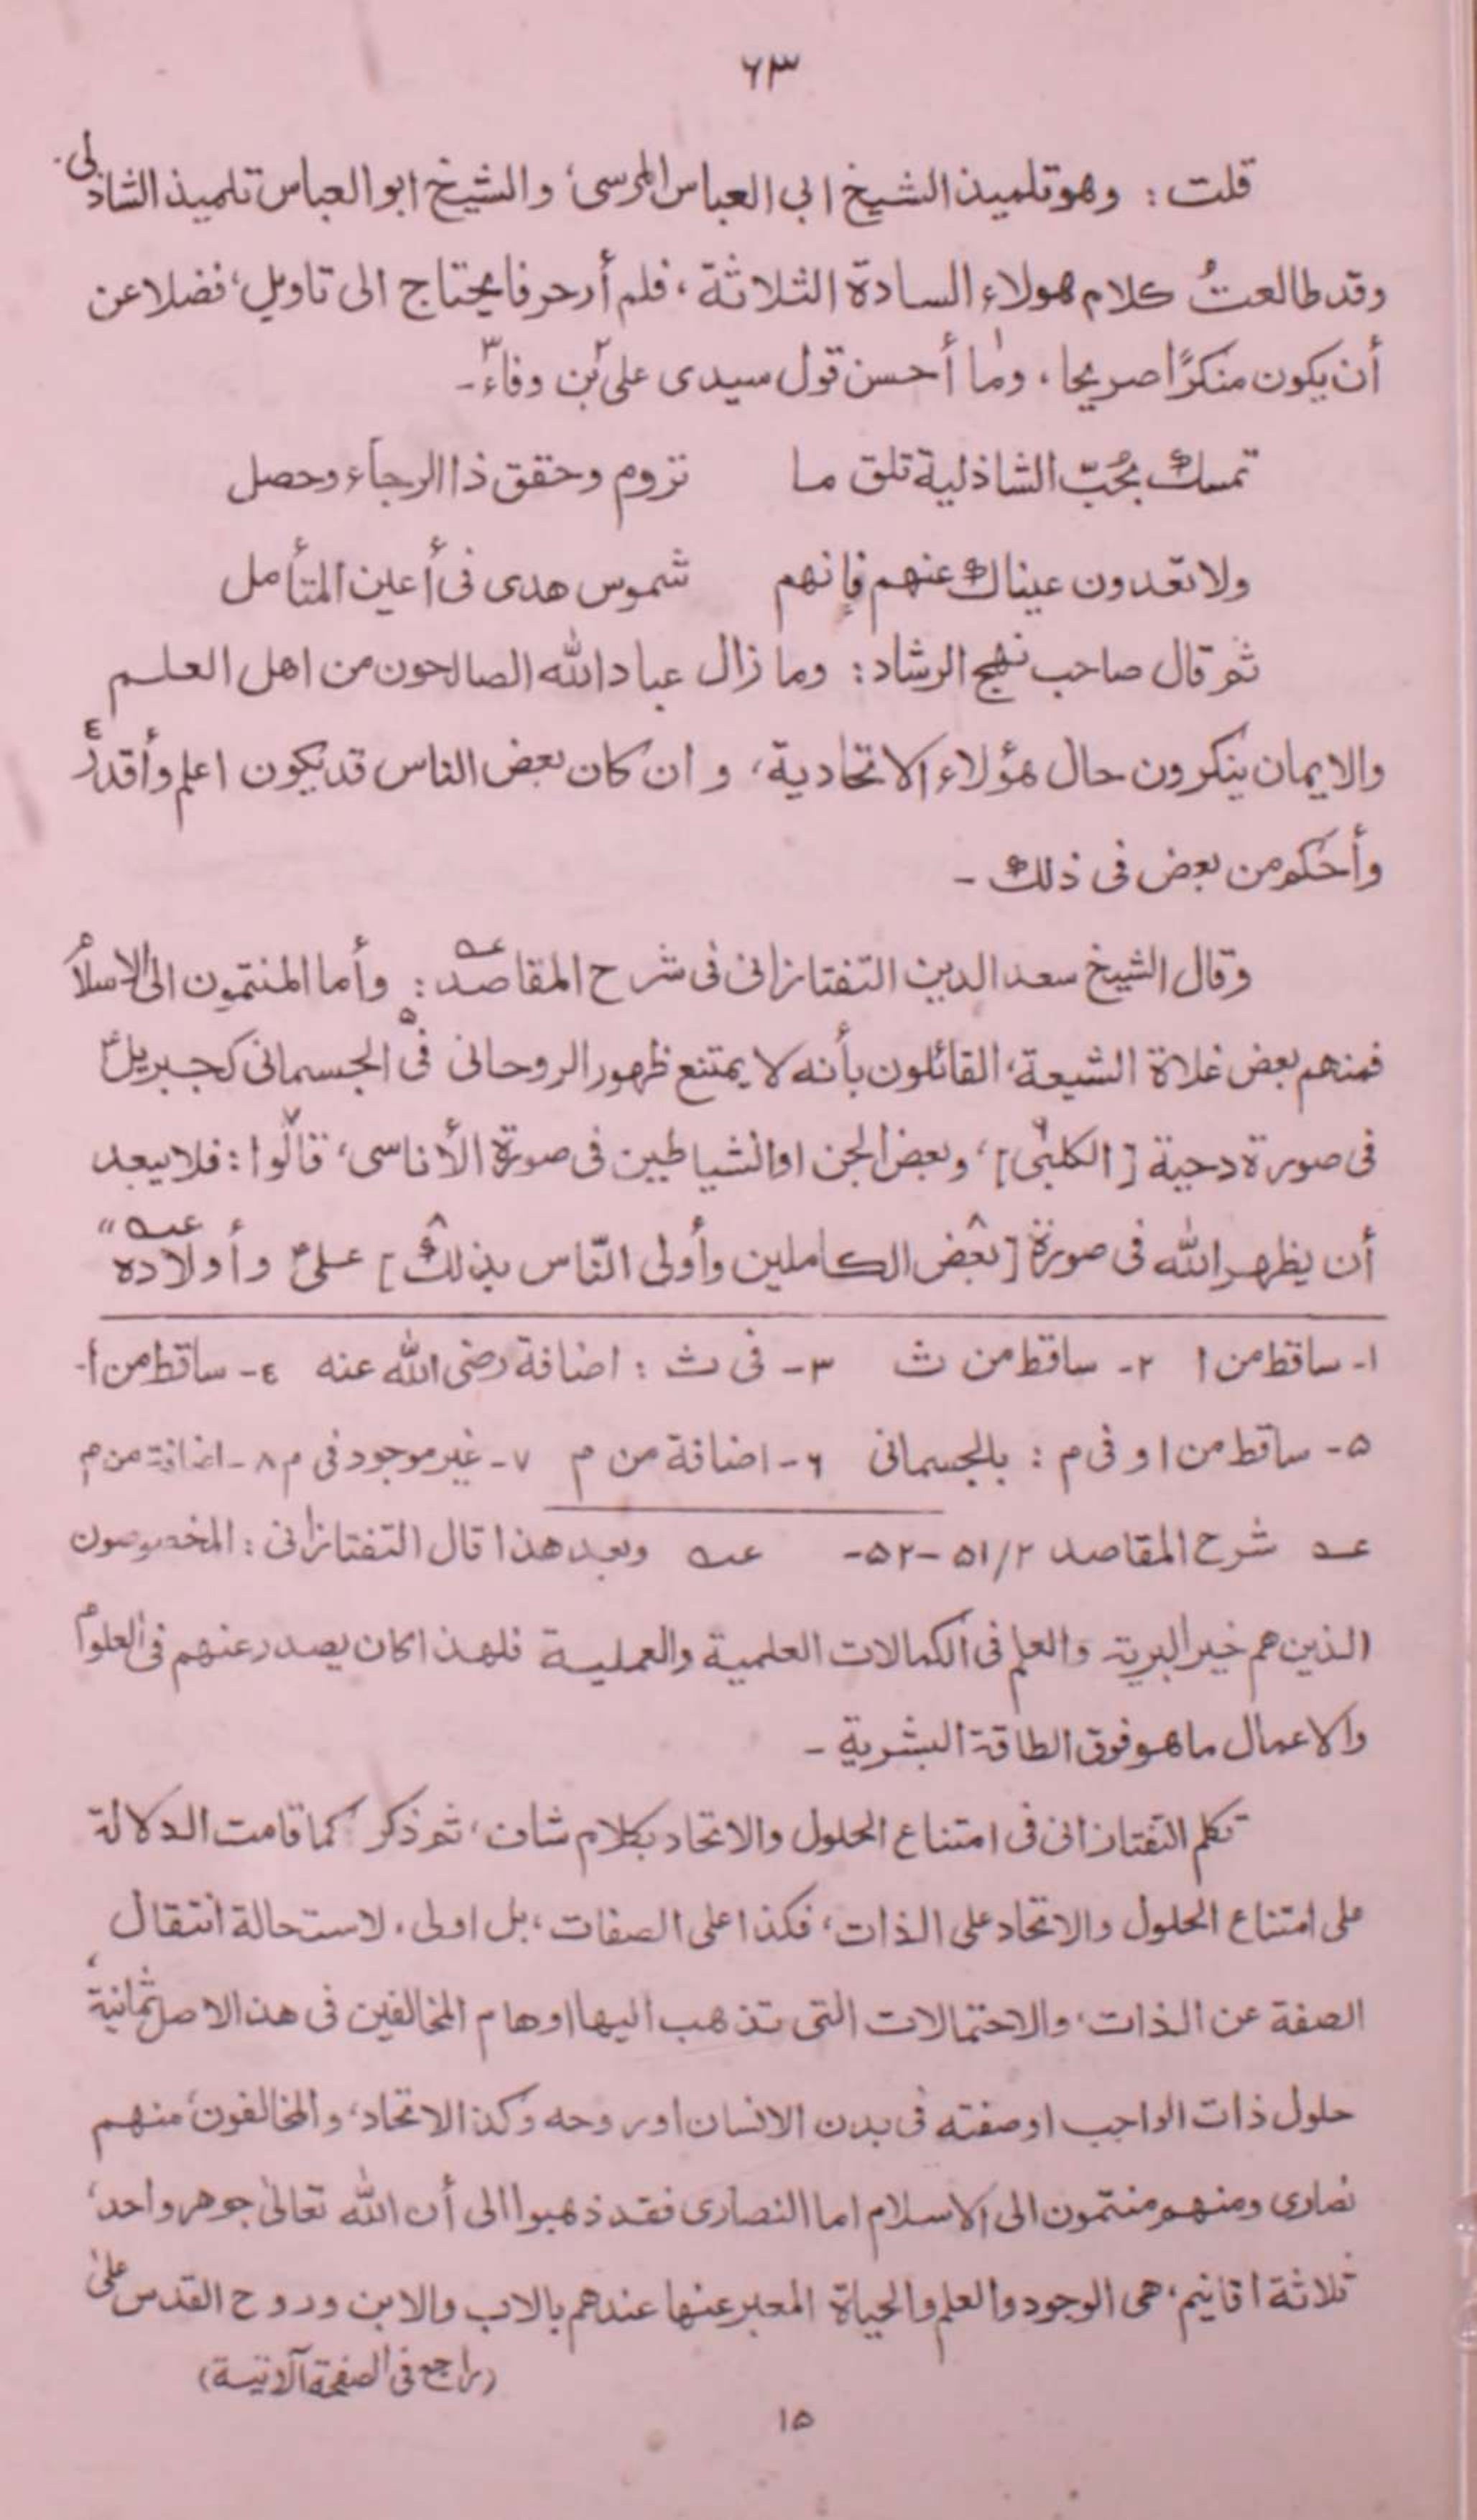 ٦٣
قلت : وهو تلميذ الشيخ ابى العباس المرسى، والشيخ ابو العباس تلميذ الشاذلى.
وقد طالعتُ كلام هولاء السادة الثلاثة، فلم أر حرفا يحتاج الى تاويل، فضلا عن
أن يكون منكرًا صريحا، وما١ أحسن قول سيدى على بن٢ وفاء٣ـ
تمسك بحُبّ الشاذلية تلق ما    تروم وحقق ذا الرجاء وحصل
ولا تعدون عيناك عنهم فإنهم    شموس هدى فى أعين المتأمل
ثم قال صاحب نهج الرشاد : وما زال عباد الله الصالحون من اهل العلم
والايمان ينكرون حال هؤلاء الاتحادية، وان كان بعض الناس قد يكون اعلم وأقدر٤
وأحكم من بعض فى ذلك ـ
وقال الشيخ سعد الدين التفتازانى فى شرح المقاصد عــه : وأما المنتمون الى الاسلام
فمنهم بعض غلاة الشيعة، القائلون بأنه لا يمتنع ظهور الروحانى فى٥ الجسمانى كجبريلؑ
فى صورة دحية [الكلبى٦]، وبعض الجن او الشياطين فى صورة الأناسى، قالوا٧ : فلا يبعد
أن يظهر الله فى صورة [٨بعض الكاملين وأولى النّاس بذلك٨] علىؓ وأولاده عــه "
١- ساقط من ا  ٢- ساقط من ث  ٣- فى ث : اضافة رضى الله عنه  ٤- ساقط من أ-
٥- ساقط من ا و فى م : بالجسمانى  ٦- اضافة من م  ٧- غير موجود فى م  ٨- اضافة من م
عــه شرح المقاصد ٢/٥١-٥٢-  عــه وبعد هذا قال التفتازانى : المخصوصون
الذين هم خير البرية والعلم فى الكمالات العلمية والعملية فلهذا كان يصدر عنهم فى العلوم
والاعمال ما هو فوق الطاقة البشرية ـ
تكلم التفتازانى فى امتناع الحلول والاتحاد بكلام شاف، ثم ذكر كما قامت الدلالة
على امتناع الحلول والاتحاد على الذات، فكذا على الصفات، بل اولى، لاستحالة انتقال
الصفة عن الذات، والاحتمالات التى تذهب اليها اوهام المخالفين فى هذا الاصل ثمانية،
حلول ذات الواجب او صفته فى بدن الانسان او روحه وكذا الاتحاد، والمخالفون، منهم
نصارى ومنهم منتمون الى الاسلام اما النصارى فقد ذهبوا الى أن الله تعالىٰ جوهر واحد،
ثلاثة اقانيم، هى الوجود والعلم والحياة المعبر عنها عندهم بالاب والابن وروح القدس على
(راجع فى الصفحة الآتية)
١٥